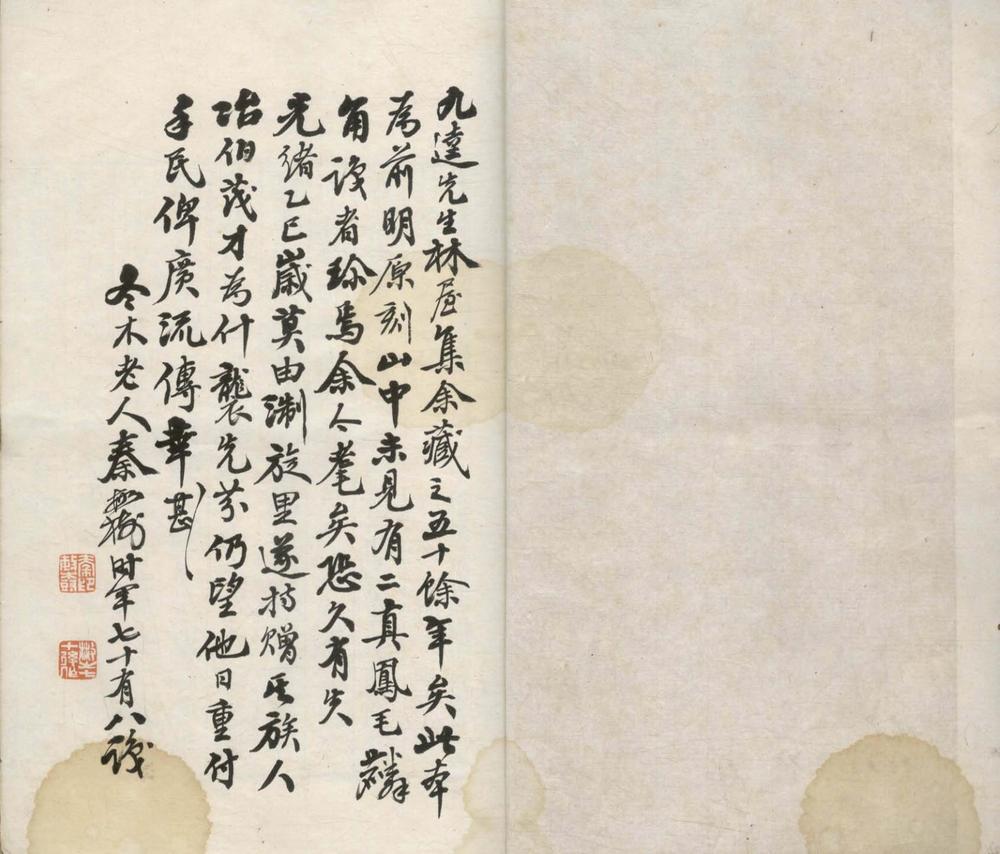 九逵先生林屋集余藏之五十餘年矣此本
為前明原刻山中未見有二真鳳毛麟
角識者珍焉余今耄矣恐久有失
光緒乙巳歲莫由淛旋里遂持贈其族人
伯茂才為什襲先芬仍望他日重付
手民俾廣流傳幸甚
冬木老人秦敏樹時年七十有八識